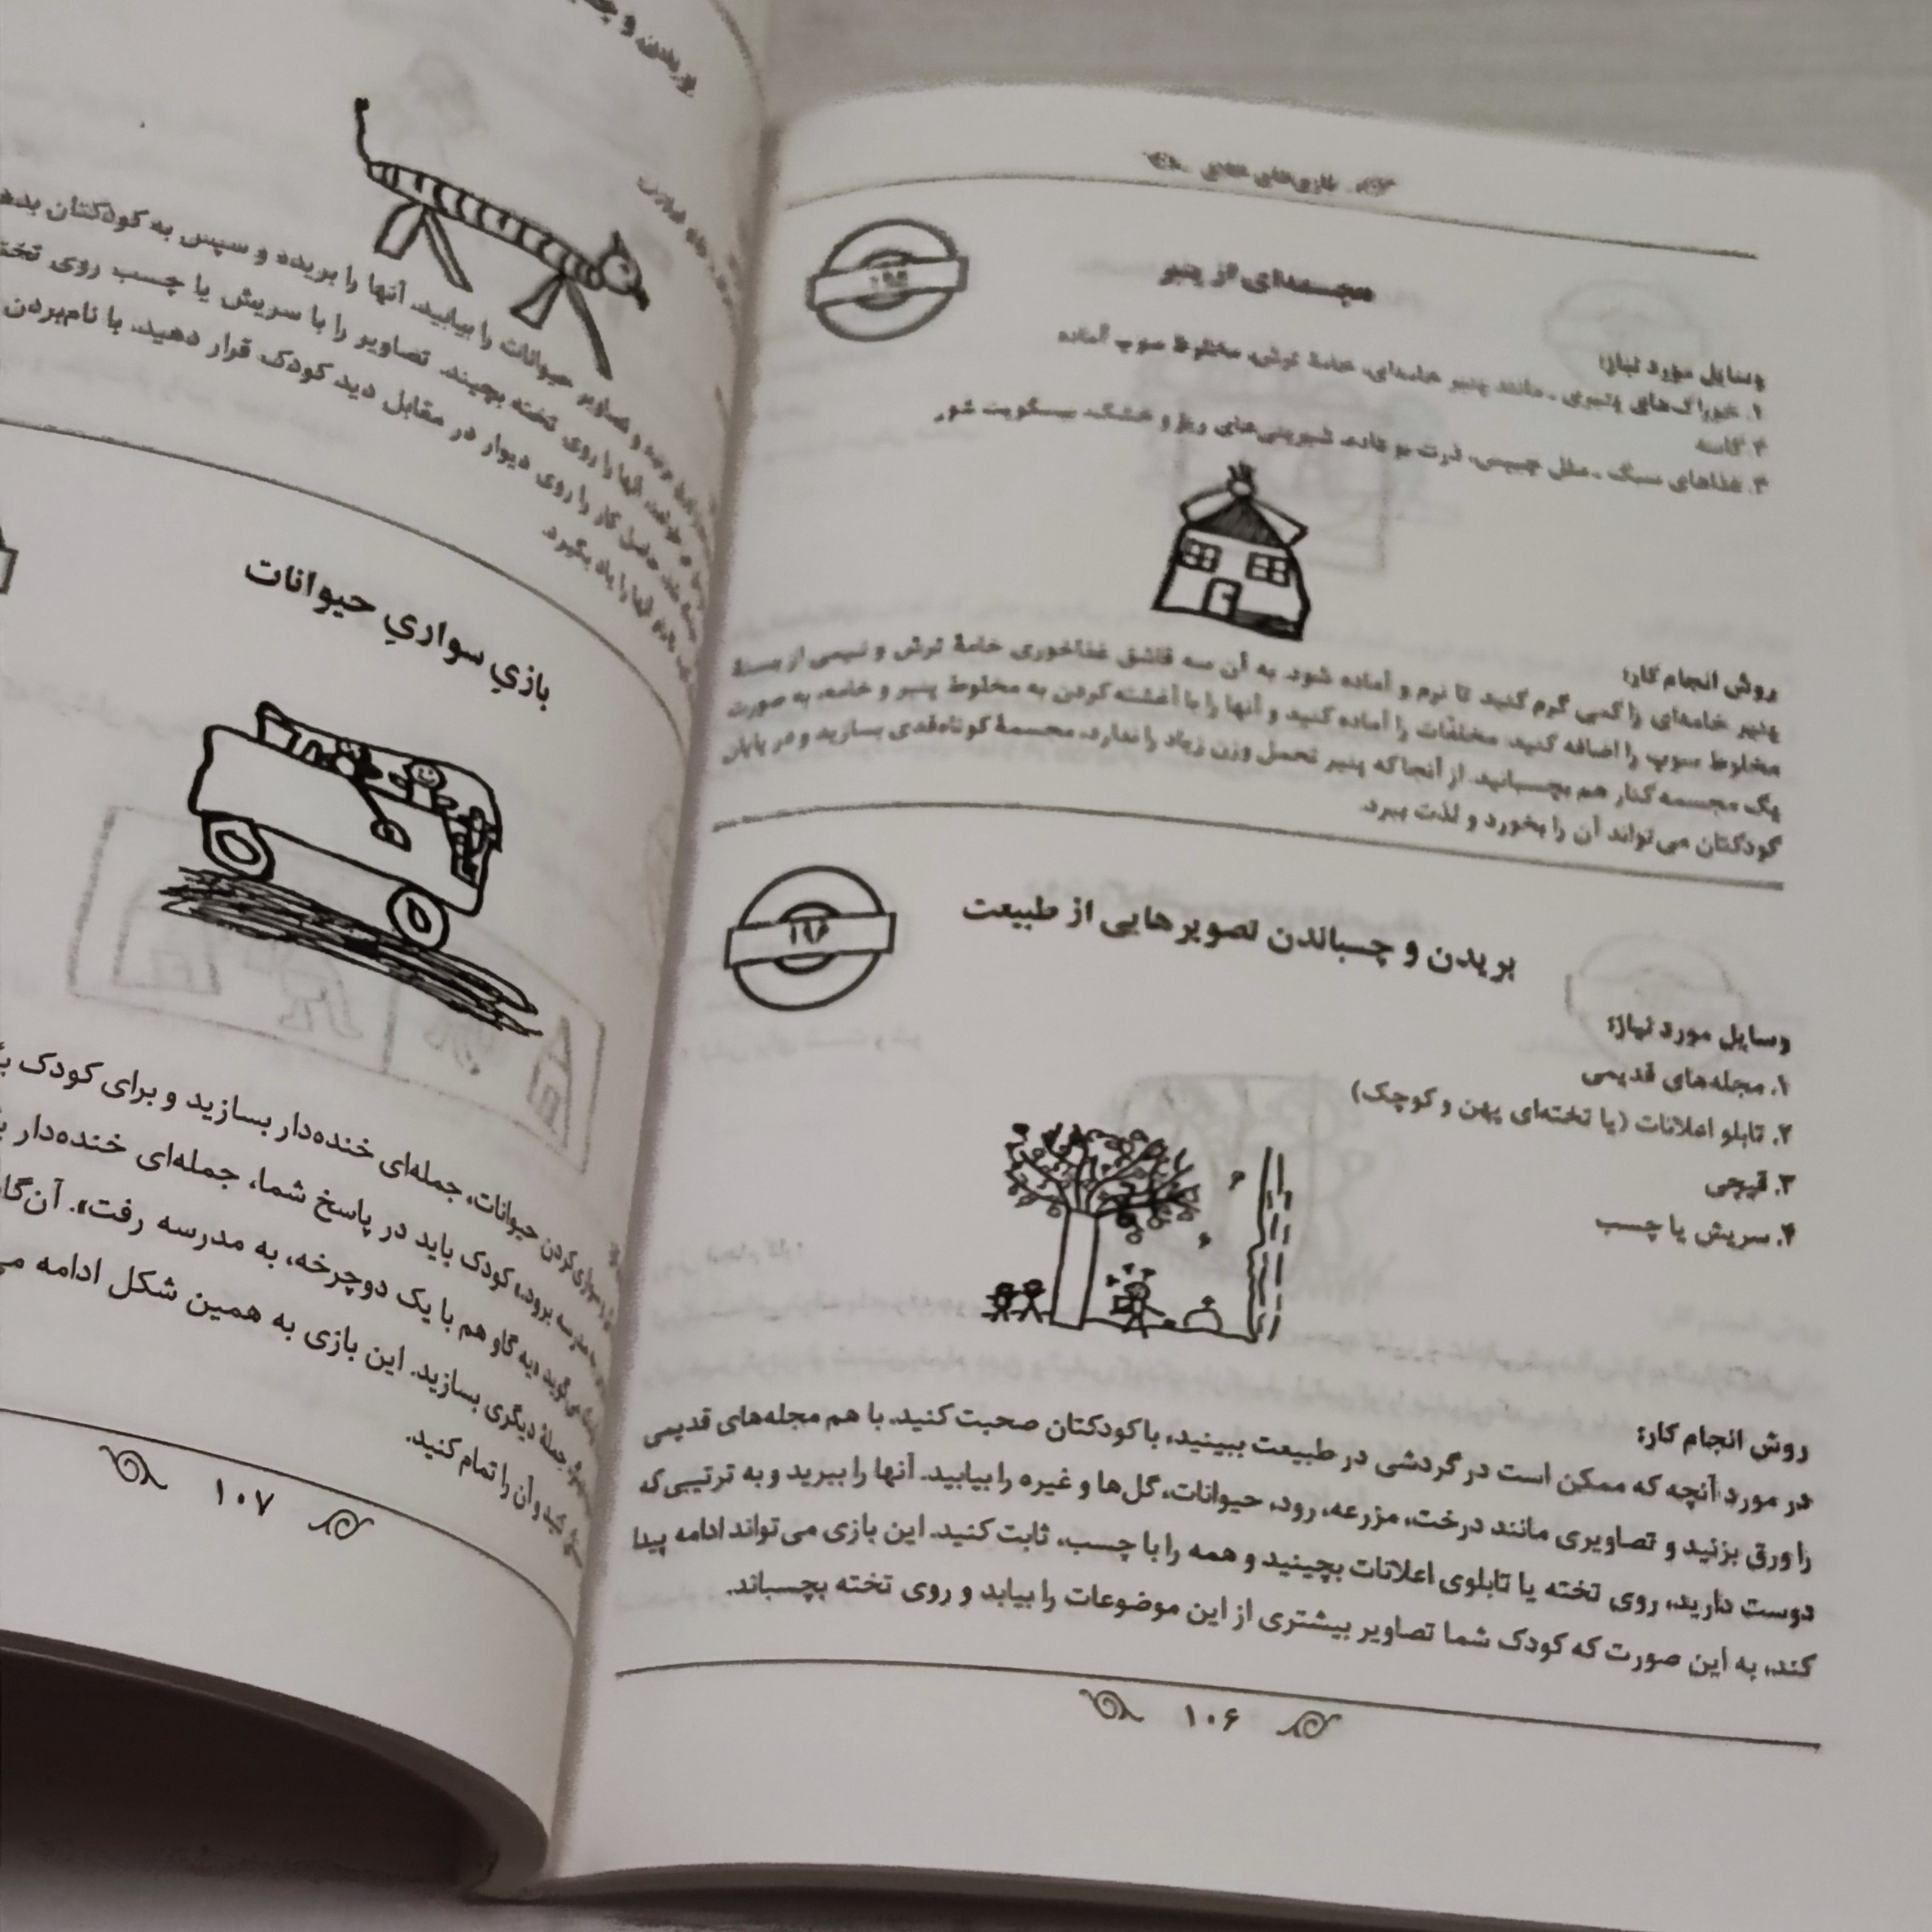 مجسمه‌ای از پنیر
وسایل مورد نیاز:
۱. خوراک‌های پنیری ـ مانند پنیر خامه‌ای، خامهٔ ترش، مخلوط سوپ آماده
۲. کاسه
۳. غذاهای سبک ـ مثل چیپس، ذرت بو داده، شیرینی‌های ریز و خشک، بیسکویت شور
روش انجام کار:
پنیر خامه‌ای را کمی گرم کنید تا نرم و آماده شود. به آن سه قاشق غذاخوری خامهٔ ترش و نیمی از بستهٔ
مخلوط سوپ را اضافه کنید. مخلفات را آماده کنید و آنها را با آغشته کردن به مخلوط پنیر و خامه، به صورت
یک مجسمه کنار هم بچسبانید. از آنجا که پنیر تحمل وزن زیاد را ندارد، مجسمهٔ کوتاه‌قدی بسازید و در پایان
کودکتان می‌تواند آن را بخورد و لذت ببرد.
۱۹۶
بریدن و چسباندن تصویرهایی از طبیعت
وسایل مورد نیاز:
۱. مجله‌های قدیمی
۲. تابلو اعلانات (یا تخته‌ای پهن و کوچک)
۳. قیچی
۴. سریش یا چسب
روش انجام کار:
در مورد آنچه که ممکن است در گردشی در طبیعت ببینید، با کودکتان صحبت کنید. با هم مجله‌های قدیمی
را ورق بزنید و تصاویری مانند درخت، مزرعه، رود، حیوانات، گل‌ها و غیره را بیابید. آنها را ببرید و به ترتیبی که
دوست دارید، روی تخته یا تابلوی اعلانات بچینید و همه را با چسب، ثابت کنید. این بازی می‌تواند ادامه پیدا
کند، به این صورت که کودک شما تصاویر بیشتری از این موضوعات را بیابد و روی تخته بچسباند.
۱۰۶
بریدن و
تصاویر حیوانات را بیابید. آنها را بریده و سپس به کودکتان بدهید
آنها را روی تخته بچیند. تصاویر را با سریش یا چسب روی تخته
حاصل کار را روی دیوار در مقابل دید کودک قرار دهید. با نام‌بردن
آنها را یاد بگیرد.
بازیِ سواریِ حیوانات
سواری کردن حیوانات، جمله‌ای خنده‌دار بسازید و برای کودک
مدرسه برود.» کودک باید در پاسخ شما، جمله‌ای خنده‌دار
می‌گوید «یه گاو هم با یک دوچرخه، به مدرسه رفت». آن‌گاه
جملهٔ دیگری بسازید. این بازی به همین شکل ادامه
کنید و آن را تمام کنید.
۱۰۷